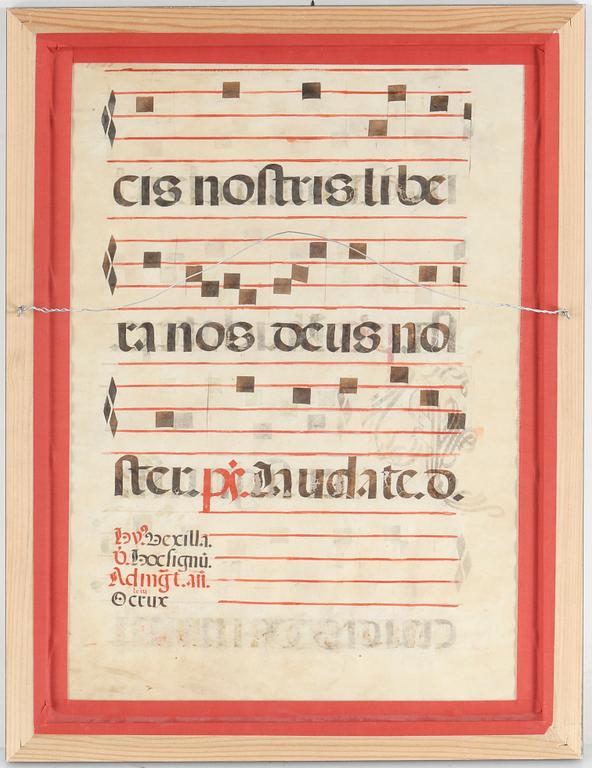 cis nostris libe
ra nos deus no
ster. ps. Laudate. d.
hy⁹. Vexilla.
v̉. Hoc signū.
Ad mḡt. añ.
O crux